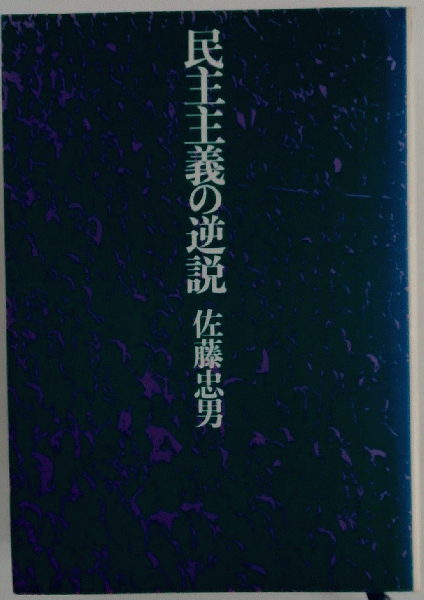 民主主義の逆説
佐藤忠男